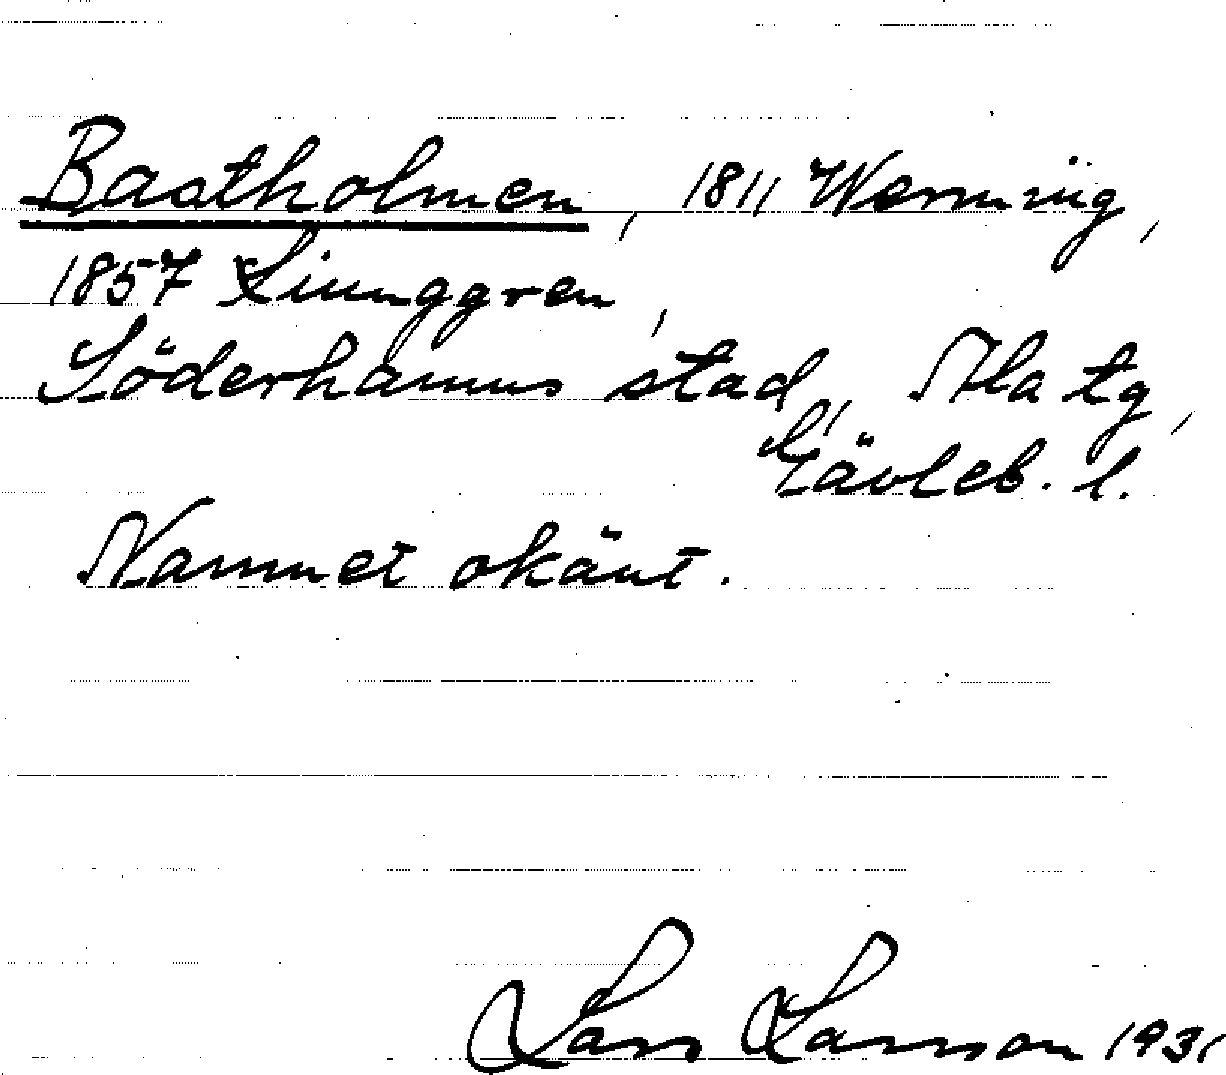 Bastholmen, 1811 Wenning,
1857 Liunggren,
Söderhamns stad, Ala tg,
Gävleb. l.
Namnet okänt.
Lars Larsson 1931